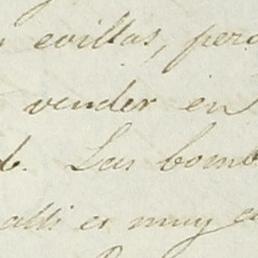 evillas, pero
vender en
Las bomb
alli es muy